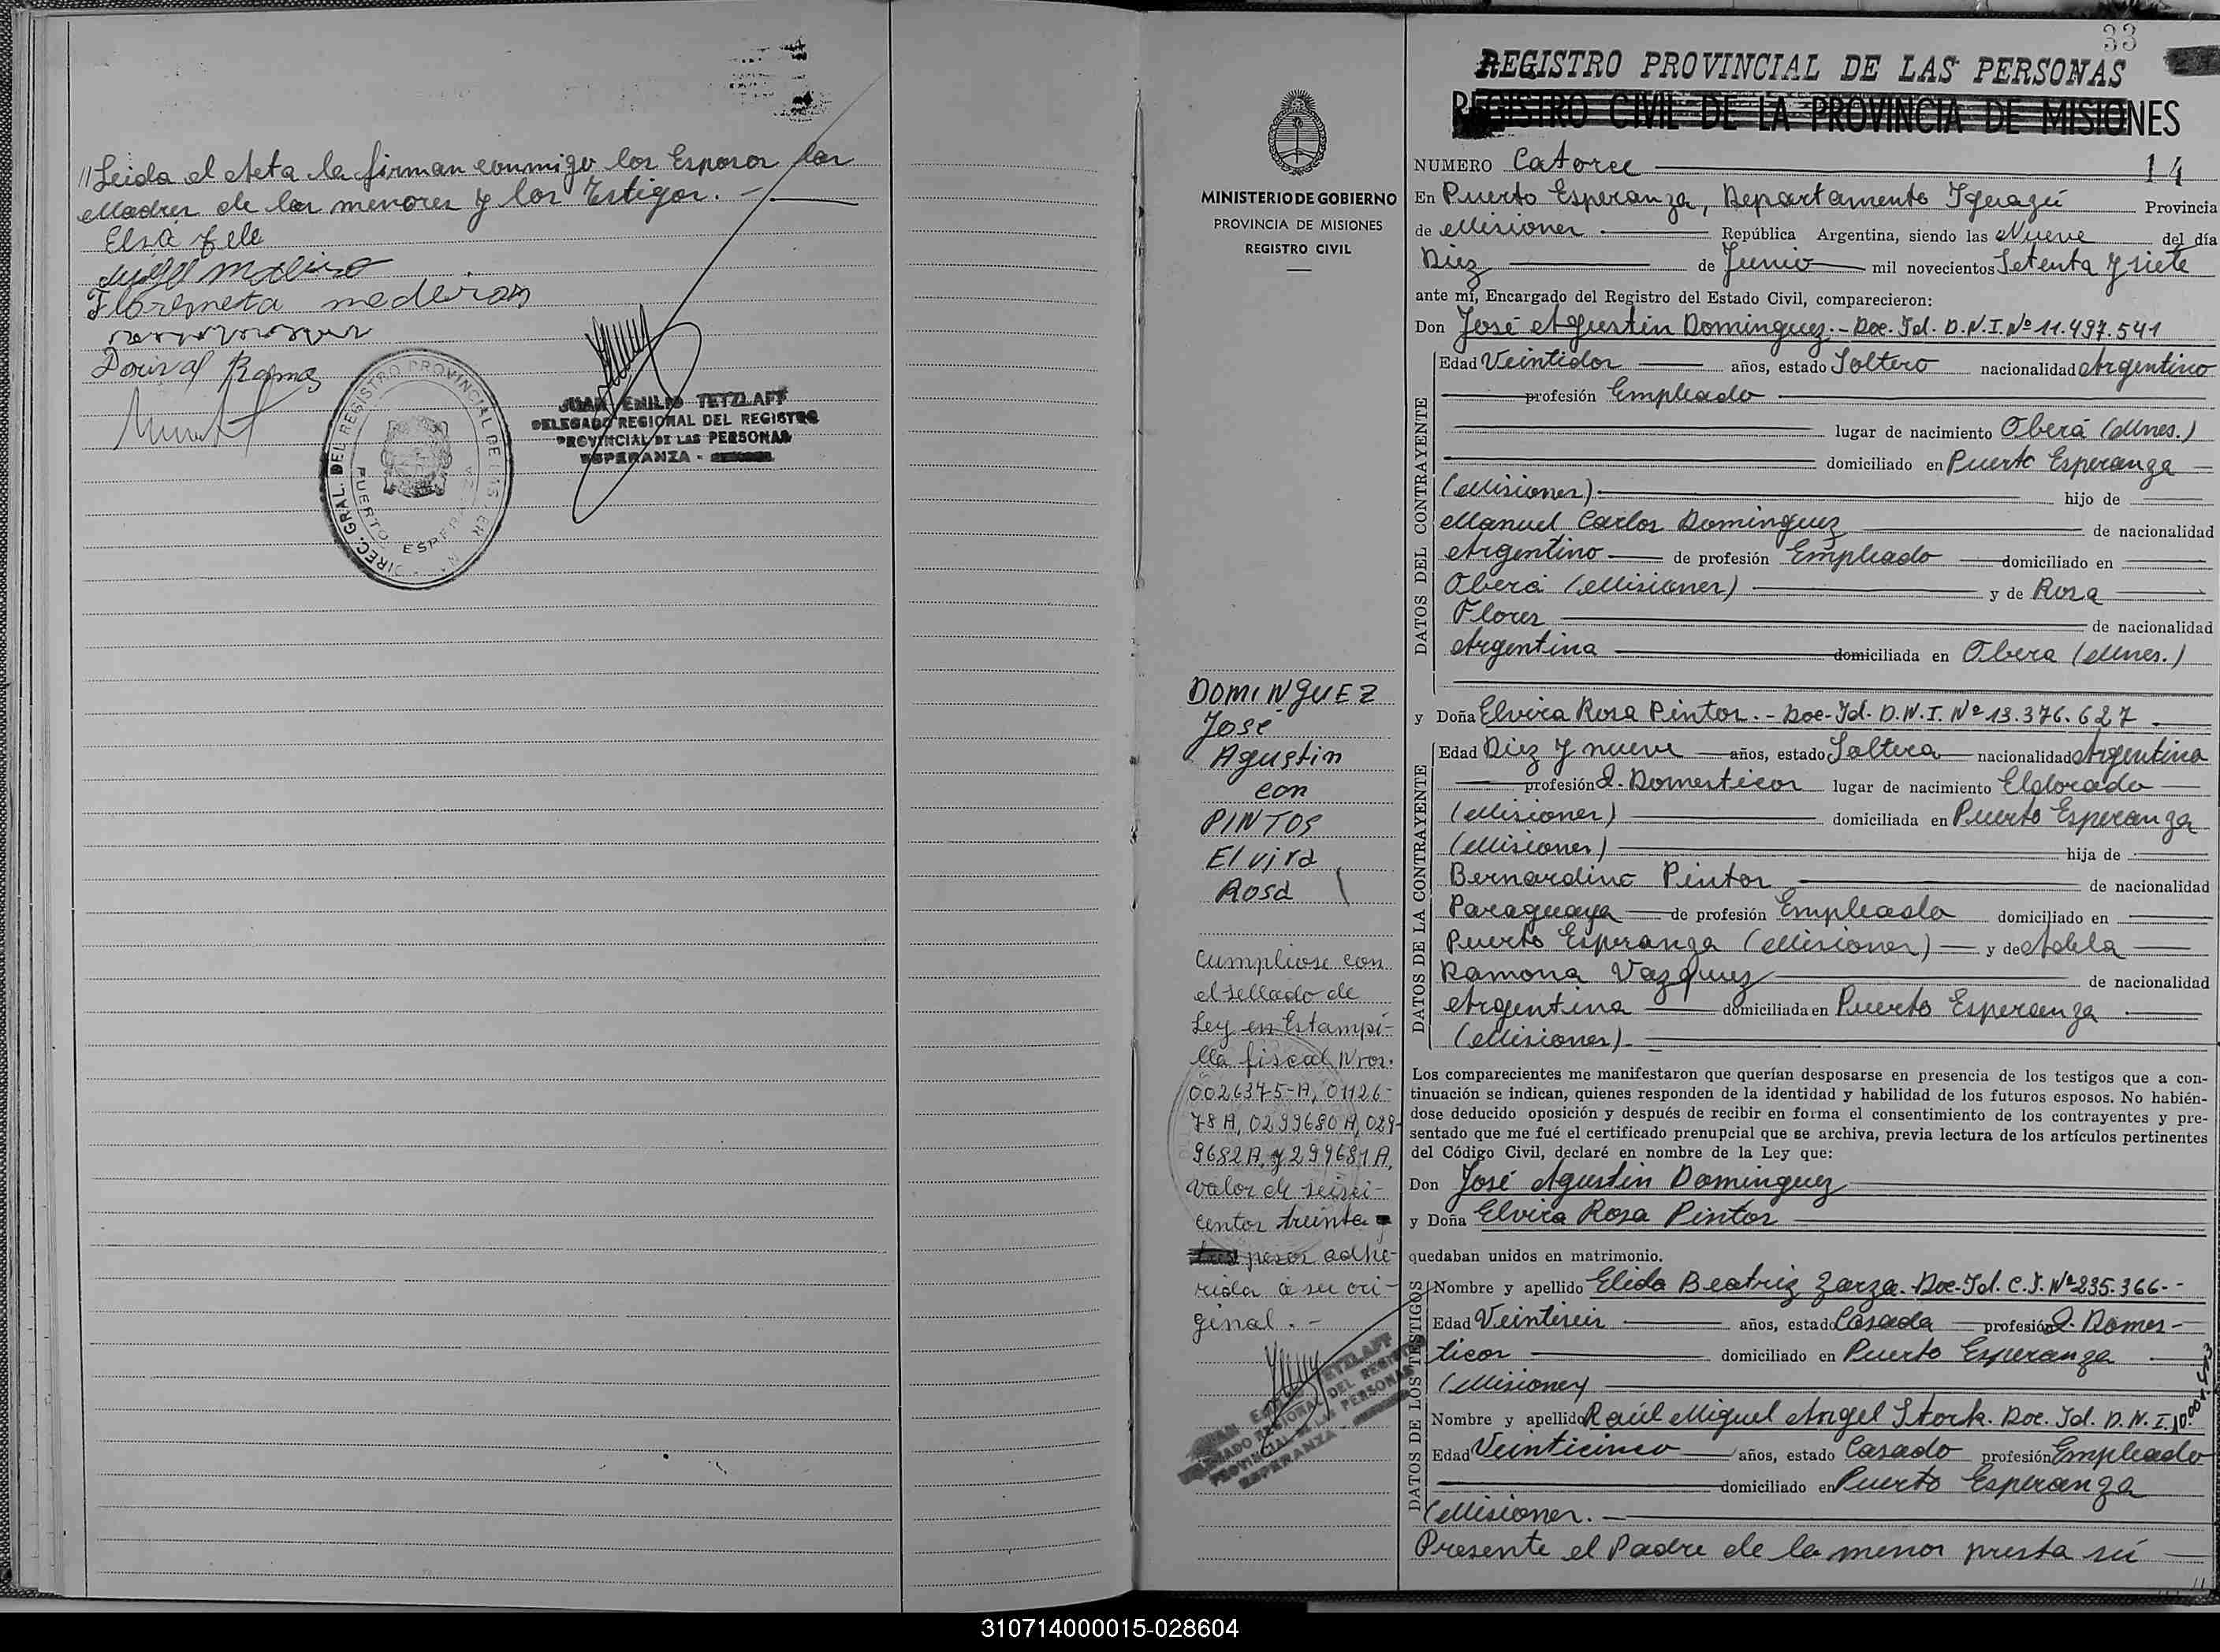 //Leida el Acta la firman conmigo los Esposos las
Madres de los menores y los Testigos. -
Elsa
Floremeta medeiros
Dorival Ramos
JUAN EMILIO TETZLAFF
DELEGADO REGIONAL DEL REGISTRO
PROVINCIAL DE LAS PERSONAS
ESPERANZA -
DIREC. GRAL. DEL REGISTRO PROVINCIAL DE LAS PER
PUERTO ESPERA
33
REGISTRO PROVINCIAL DE LAS PERSONAS
REGISTRO CIVIL DE LA PROVINCIA DE MISIONES
MINISTERIO DE GOBIERNO
PROVINCIA DE MISIONES
REGISTRO CIVIL
DOMINGUEZ
José
Agustin
con
PINTOS
Elvira
Rosa
Cumpliose con
el sellado de
Ley en Estampi-
lla fiscal Nros.
0026375-A, 01126-
78 A, 0299680 A, 029-
9682 A, y 299681 A,
valor de seisci-
entos treinta
tres pesos adhe-
ridas a su ori-
ginal. -
TETZLAFF
DELEGADO REGIONAL DEL REGISTRO
PROVINCIAL DE LAS PERSONAS
ESPERANZA -
NUMERO Catorce 14
En Puerto Esperanza, Departamento Iguazú Provincia
de Misiones República Argentina, siendo las Nueve del día
Diez de Junio mil novecientos Setenta y siete
ante mí, Encargado del Registro del Estado Civil, comparecieron:
Don José Agustin Dominguez.- Doc. Id. D.N.I. Nº 11.497.541
DATOS DEL CONTRAYENTE
Edad Veintidos años, estado Soltero nacionalidad Argentino
profesión Empleado
lugar de nacimiento Oberá (Mnes.)
domiciliado en Puerto Esperanza
(Misiones) hijo de
Manuel Carlos Dominguez de nacionalidad
Argentino de profesión Empleado domiciliado en
Oberá (Misiones) y de Rosa
Flores de nacionalidad
Argentina domiciliada en Obera (Mnes.)
y Doña Elvira Rosa Pintos. - Doc- Id. D.N.I. Nº 13.376.627
DATOS DE LA CONTRAYENTE
Edad Diez y nueve años, estado Soltera nacionalidad Argentina
profesión Q. Domesticos lugar de nacimiento Eldorado
(Misiones) domiciliada en Puerto Esperanza
(Misiones) hija de
Bernardino Pintos de nacionalidad
Paraguaya de profesión Empleado domiciliado en
Puerto Esperanza (Misiones) y de Adela
Ramona Vazquez de nacionalidad
Argentina domiciliada en Puerto Esperanza
(Misiones).
Los comparecientes me manifestaron que querían desposarse en presencia de los testigos que a con-
tinuación se indican, quienes responden de la identidad y habilidad de los futuros esposos. No habién-
dose deducido oposición y después de recibir en forma el consentimiento de los contrayentes y pre-
sentado que me fué el certificado prenupcial que se archiva, previa lectura de los artículos pertinentes
del Código Civil, declaré en nombre de la Ley que:
Don José Agustin Dominguez
y Doña Elvira Rosa Pintos
quedaban unidos en matrimonio.
DATOS DE LOS TESTIGOS
Nombre y apellido Elida Beatriz Zarza. Doc. Id. C.I. Nº 235.366-
Edad Veintiseis años, estado Casada profesión Q. Domes-
ticos domiciliado en Puerto Esperanza
(Misiones)
Nombre y apellido Raúl Miguel Angel Stork. Doc. Id. D.N.I.
Edad Veinticinco años, estado Casado profesión Empleado
domiciliado en Puerto Esperanza
(Misiones. -
Presente el Padre de la menor presta sú
310714000015-028604